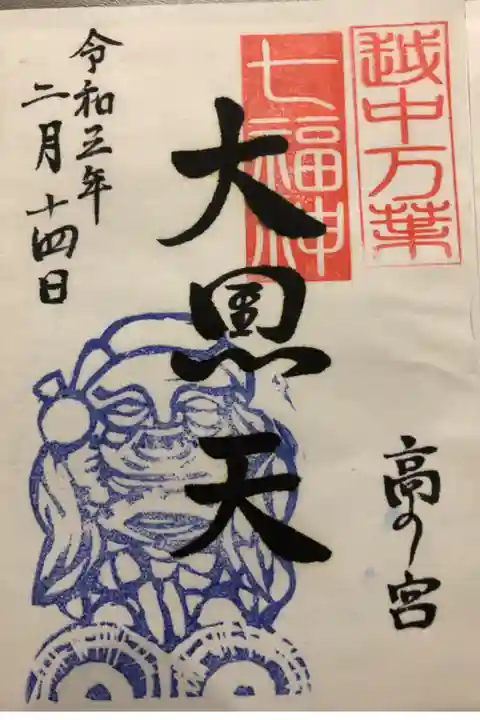 越中万葉
七福神
大黒天
高の宮
令和三年
二月十四日